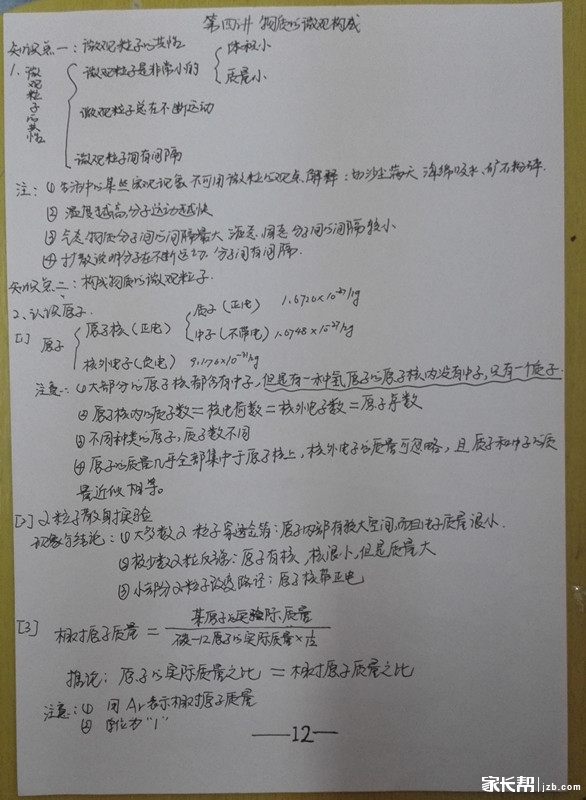 第四讲 物质的微观构成
知识点一：微观粒子的共性
1. 微观粒子的共性
微观粒子是非常小的
体积小
质量小
微观粒子总在不断运动
微观粒子间有间隔
注：① 生活中的某些宏观现象不可用微粒的观点解释：如沙尘满天 海绵吸水、矿石粉碎.
② 温度越高,分子运动越快
③ 气态物质分子间的间隔最大 液态、固态分子间的间隔较小
④ 扩散说明分子在不断运动，分子间有间隔.
知识点二：构成物质的微观粒子.
2、认识原子.
[1] 原子
原子核（正电）
质子（正电） 1.6726×10⁻²⁷/kg
中子（不带电） 1.6748×10⁻²⁷/kg
核外电子（负电） 9.176×10⁻³¹/kg
注意：① 大部分的原子核都含有中子，但是有一种氢原子的原子核内没有中子，只有一个质子.
② 原子核内的质子数＝核电荷数＝核外电子数＝原子序数
③ 不同种类的原子，质子数不同
④ 原子的质量几乎全部集中于原子核上，核外电子的质量可忽略，且质子和中子的质
量近似相等。
[2] α粒子散射实验
现象与结论：① 大多数α粒子穿透金箔：原子内部有较大空间,而且电子质量很小.
② 极少数α粒反弹：原子有核，核很小，但是质量大
③ 小部分α粒子改变路径：原子核带正电
[3] 相对原子质量 = 某原子的实际质量
碳-12原子的实际质量×1/12
推论：原子的实际质量之比 = 相对原子质量之比
注意：① 用Ar表示相对原子质量
② 单位为“1”
—12—
家长帮 jzb.com